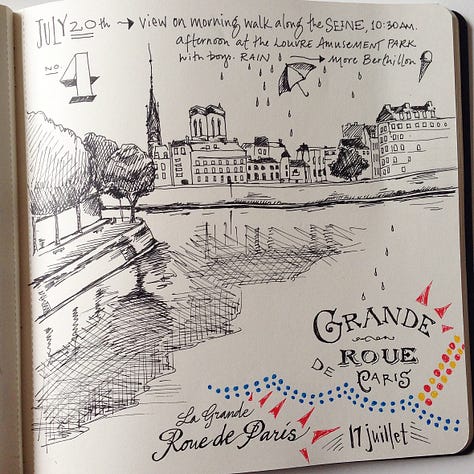 JULY 20th → VIEW on MORNING WALK along the SEINE, 10:30 AM.
afternoon at the LOUVRE AMUSEMENT PARK
with boys. RAIN → More Berthillon
NO. 1
GRANDE
ROUE
DE PARIS
La Grande
Roue de Paris
17 juillet